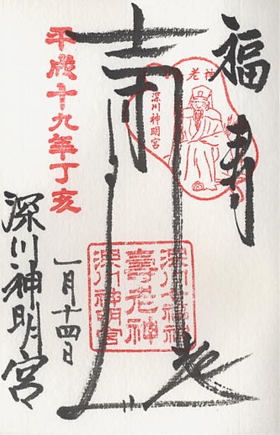 福寿
深川神明宮
深川七福神
壽老神
深川神明宮
平成十九年丁亥
一月十四日
深川神明宮